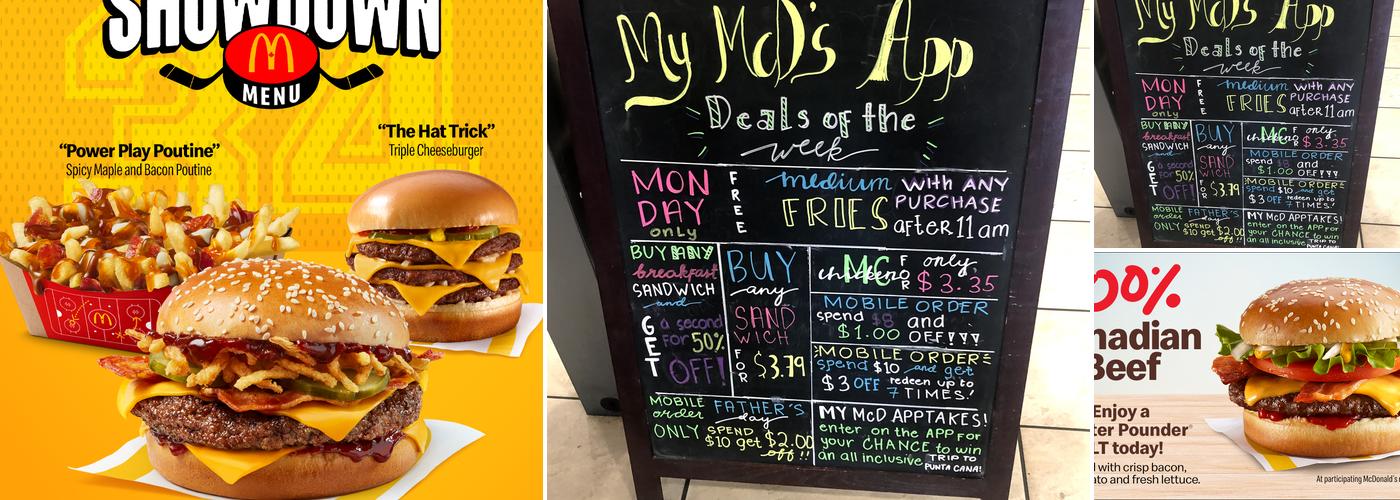 SHOWDOWN
MENU
"The Hat Trick"
Triple Cheeseburger
"Power Play Poutine"
Spicy Maple and Bacon Poutine
My McD's App
Deals of the
week
MON
DAY
only
FREE
medium
FRIES
with ANY
PURCHASE
after 11am
BUY ANY
breakfast
SANDWICH
and
GET
a second
for 50%
OFF!
BUY
any
SAND
WICH
FOR
$3.79
MC
chicken
FOR
only
$3.35
MOBILE ORDER
spend $8 and
$1.00 OFF!
MOBILE ORDER
spend $10 and get
$3 OFF redeem up to
7 TIMES!
MOBILE
order
ONLY
FATHER'S
day
SPEND
$10 get $2.00
off!!
MY McD APPTAKES!
enter on the APP for
your CHANCE to win
an all inclusive TRIP TO
PUNTA CANA!
My McD's App
Deals of the
week
MON
DAY
only
FREE
medium
FRIES
with ANY
PURCHASE
after 11am
BUY ANY
breakfast
SANDWICH
and
GET
a second
for 50%
OFF!
BUY
any
SAND
WICH
FOR
$3.79
MC
FOR
only
$3.35
MOBILE ORDER
spend $8 and
$1.00 OFF!
MOBILE ORDER
spend $10 and get
$3 OFF redeem up to
7 TIMES!
MOBILE
order
ONLY
FATHER'S
day
SPEND
$10 get $2.00
off!!
MY McD APPTAKES!
enter on the APP for
your CHANCE to win
an all inclusive TRIP TO
00%
nadian
Beef
Enjoy a
ter Pounder®
LT today!
with crisp bacon,
ato and fresh lettuce.
At participating McDonald